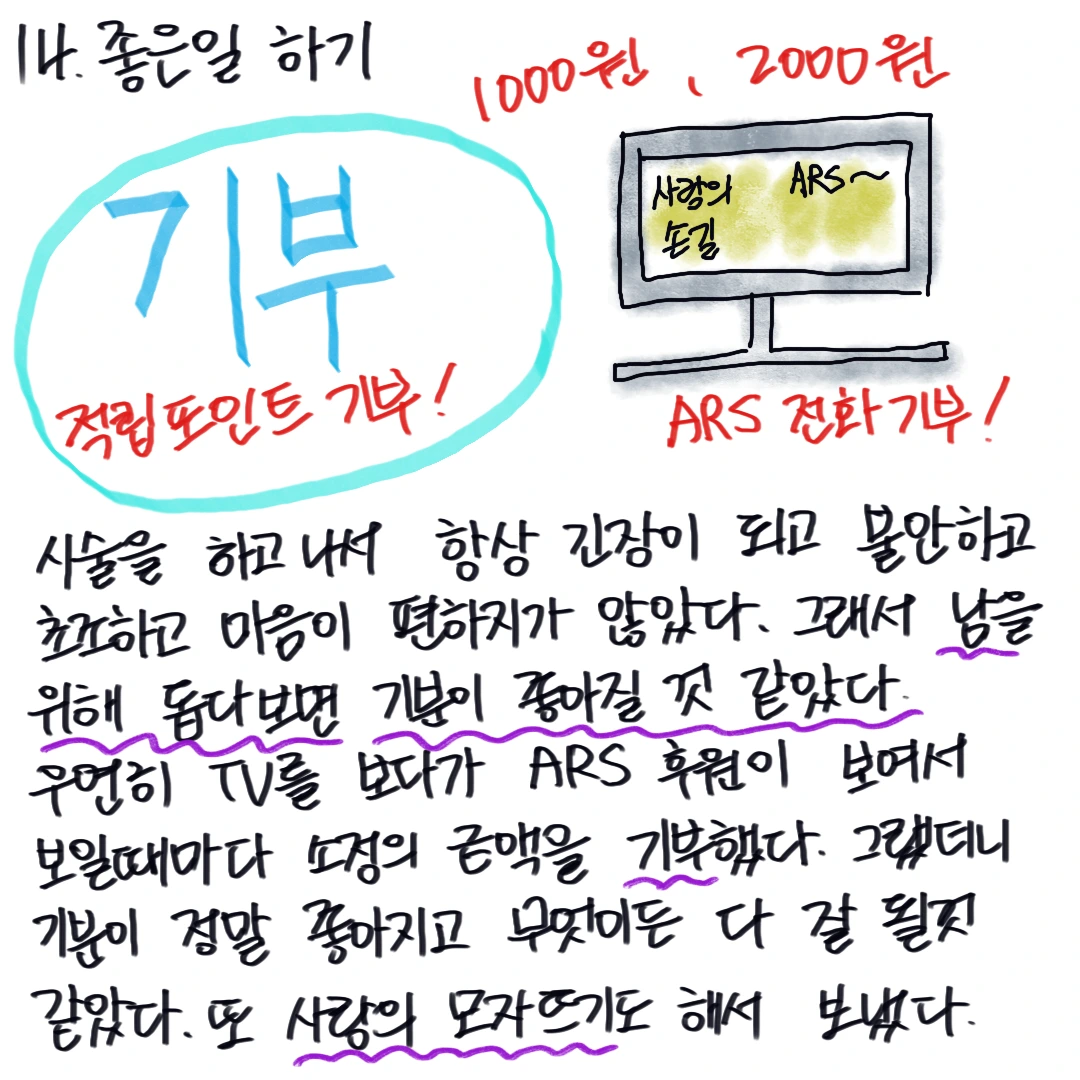 14. 좋은일 하기
1000원, 2000원
기부
적립포인트 기부!
사랑의 ARS~
손길
ARS 전화기부!
시술을 하고나서 항상 긴장이 되고 불안하고
초조하고 마음이 편하지가 않았다. 그래서 남을
위해 돕다보면 기분이 좋아질 것 같았다.
우연히 TV를 보다가 ARS 후원이 보여서
보일때마다 소정의 금액을 기부했다. 그랬더니
기분이 정말 좋아지고 무엇이든 다 잘 될것
같았다. 또 사랑의 모자뜨기도 해서 보냈다.